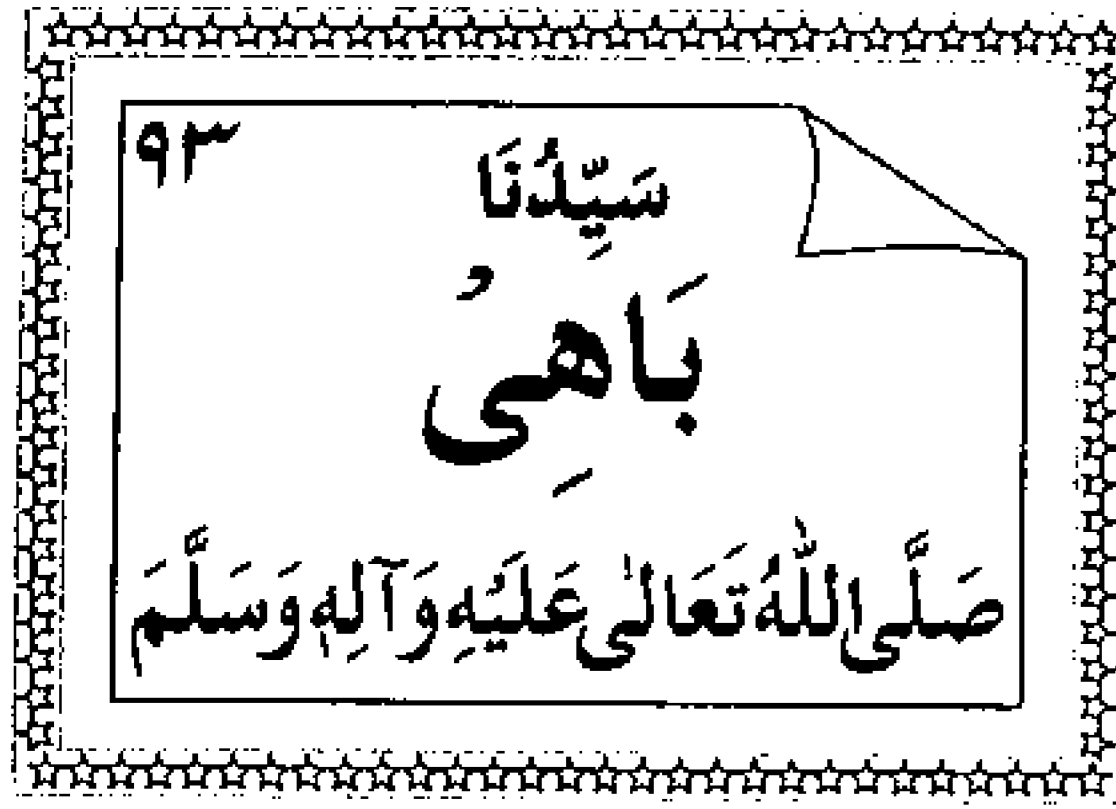 ٩٣
سَيِّدُنَا
بَاهِیُ
صَلَّی اللّٰهُ تَعَالٰی عَلَیْهِ وَآلِهٖ وَسَلَّمَ